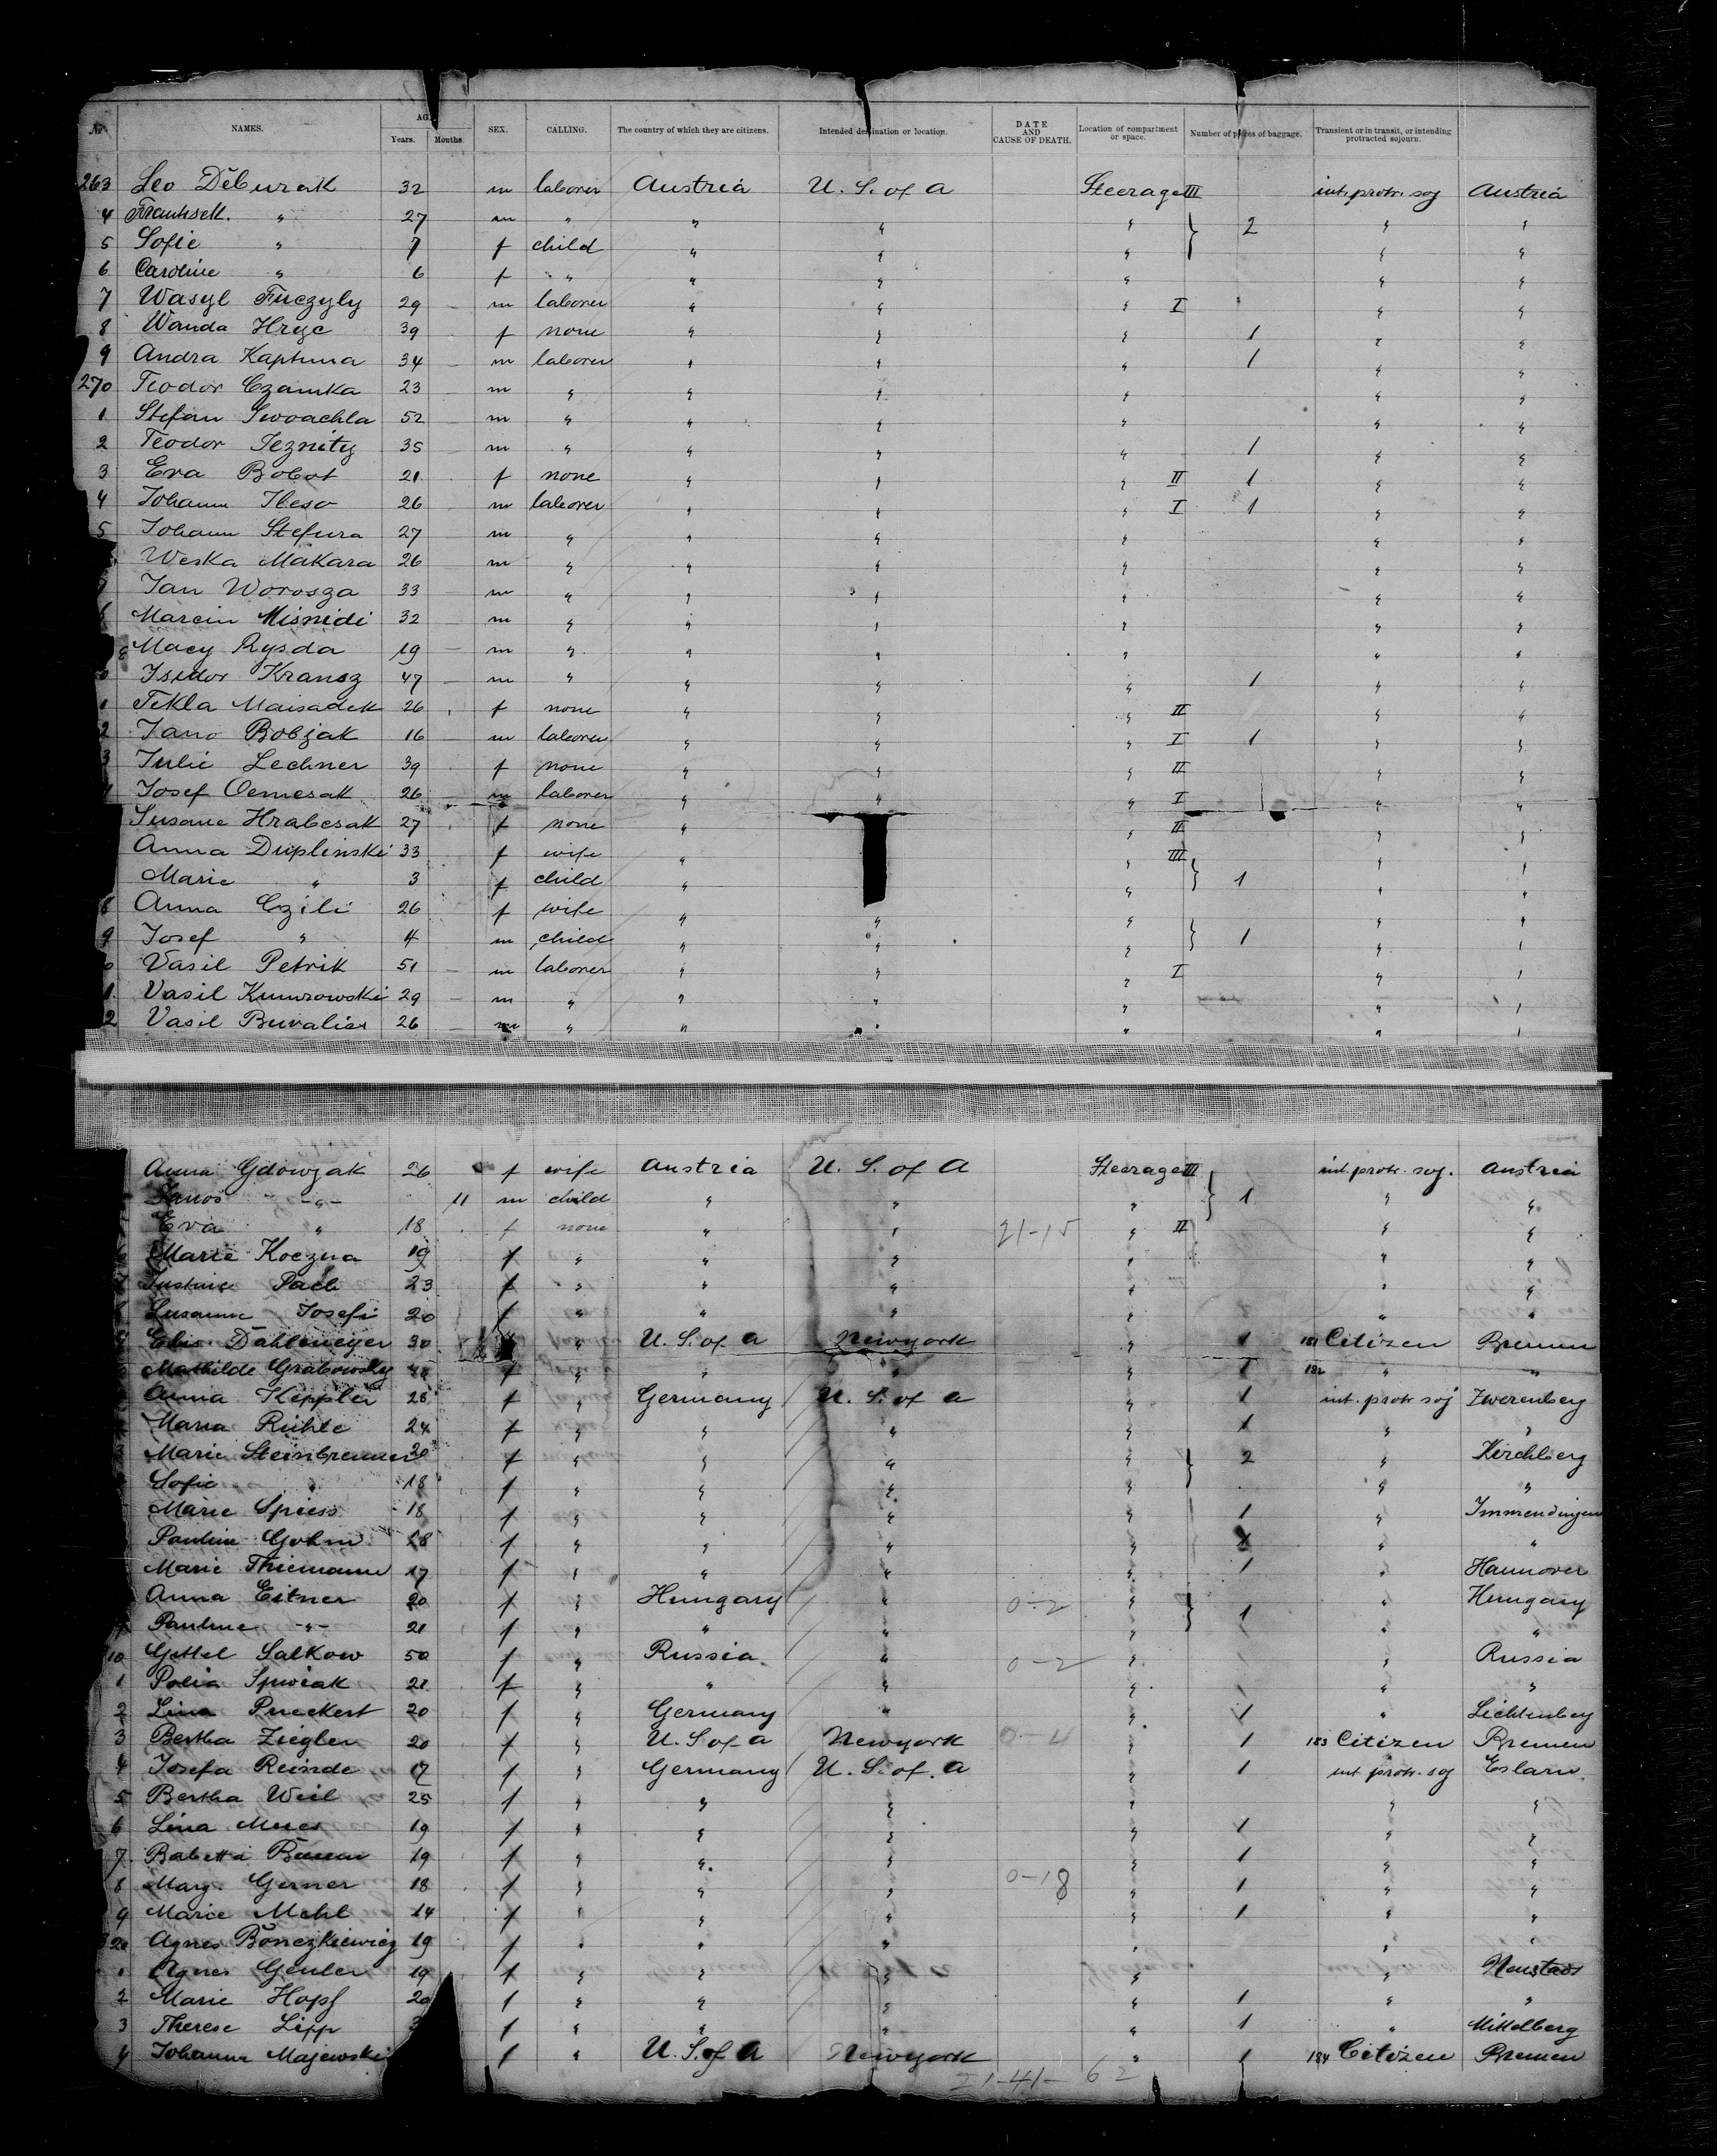 No. NAMES. AGE. Years. Months. SEX. CALLING. The country of which they are citizens. Intended destination or location. DATE AND CAUSE OF DEATH. Location of compartment or space. Number of pieces of baggage. Transient or in transit, or intending protracted sojourn.
263 Leo Deburak 32 m laborer Austria U. S. of A Steerage III int. protr. soj Austria
4 Frantisek. " 27 m " " " " 2 " "
5 Sofie " 7 f child " " " " "
6 Caroline " 6 f " " " " " "
7 Wasyl Fuczyly 29 m laborer " " " I " "
8 Wanda Hryc 39 f none " " " 1 " "
9 Andra Kaptuna 34 m laborer " " " 1 " "
270 Teodor Czamka 23 m " " " " " "
1 Stefan Swoachla 52 m " " " " " "
2 Teodor Jeznity 35 m " " " " 1 " "
3 Eva Bobot 21 f none " " " II 1 " "
4 Johann Ileso 26 m laborer " " " I 1 " "
5 Johann Stefura 27 m " " " " " "
Weska Makara 26 m " " " " " "
Jan Worosza 33 m " " " " " "
Marcin Misnidi 32 m " " " " " "
Macy Rysda 19 m " " " " " "
Isidor Kransz 47 m " " " " 1 " "
1 Tekla Maisadek 26 f none " " " II " "
2 Jano Bobjak 16 m laborer " " " I 1 " "
3 Julie Lechner 39 f none " " " II " "
Josef Oemesak 26 m laborer " " " I 1 " "
Susane Hrabcsak 27 f none " " II " "
Anna Duplinski 33 f wife " " III " "
Marie " 3 f child " " 1 " "
8 Anna Czili 26 f wife " " " " "
9 Josef " 4 m child " " " 1 " "
Vasil Petrik 51 m laborer " " " I " "
1 Vasil Kumrowski 29 m " " " " " "
2 Vasil Buvalics 26 m " " " " " "
Anna Gdowjak 26 f wife Austria U. S. of A Steerage III int. protr. soj. Austria
Janos " 11 m child " " " 1 " "
Eva " 18 f none " " 21-15 " II " "
Marie Koczna 19 f " " " " " "
Justine Pach 23 f " " " " " "
Susanne Josefi 20 f " " " " " "
Elis. Dahlmeyer 30 " U. S. of A Newyork " 1 181 Citizen Bremen
Mathilde Grabowsky f " " " " 1 182 " "
Anna Keppler 28 f " Germany U. S. of A " 1 int. protr soj Zwerenberg
Maria Rühle 24 f " " " " 1 " "
3 Marie Steinbrenner f " " " " 2 " Kirchberg
Sofie " 18 f " " " " " "
Marie Spiess 18 f " " " " 1 " Immendingen
Pauline Gohm 28 f " " " " " "
Marie Thiemann 17 f " " " " 1 " Hannover
Anna Eitner 20 f " Hungary " 0-2 " 1 " Hungary
Pauline " 21 f " " " " " "
10 Gittel Salkow 50 f " Russia " 0-2 " " Russia
1 Polia Spiwak 21 f " " " " " "
2 Lina Pueckert 20 f " Germany " " 1 " Lichtenberg
3 Bertha Ziegler 20 f " U. S of A Newyork 0-4 " 1 183 Citizen Bremen
4 Josefa Reinde 17 f " Germany U. S. of. A " 1 int protr. soj Eslarn
5 Bertha Weil 25 f " " " " " "
6 Lina Mues 19 f " " " " 1 " "
7 Babetta Baum 19 f " " " " 1 " "
8 Marg. Gerner 18 f " " " 0-18 " 1 " "
9 Marie Mehl 14 f " " " " 1 " "
320 Agnes Bonczkiewicz 19 f " " " " " "
1 Agnes Geuler 19 f " " " " " Neustadt
2 Marie Hopf 20 f " " " " 1 " "
3 Therese Lipp f " " " " 1 " Mittelberg
4 Johanna Majewski f " U. S. of A Newyork " 1 184 Citizen Bremen
21-41- 62